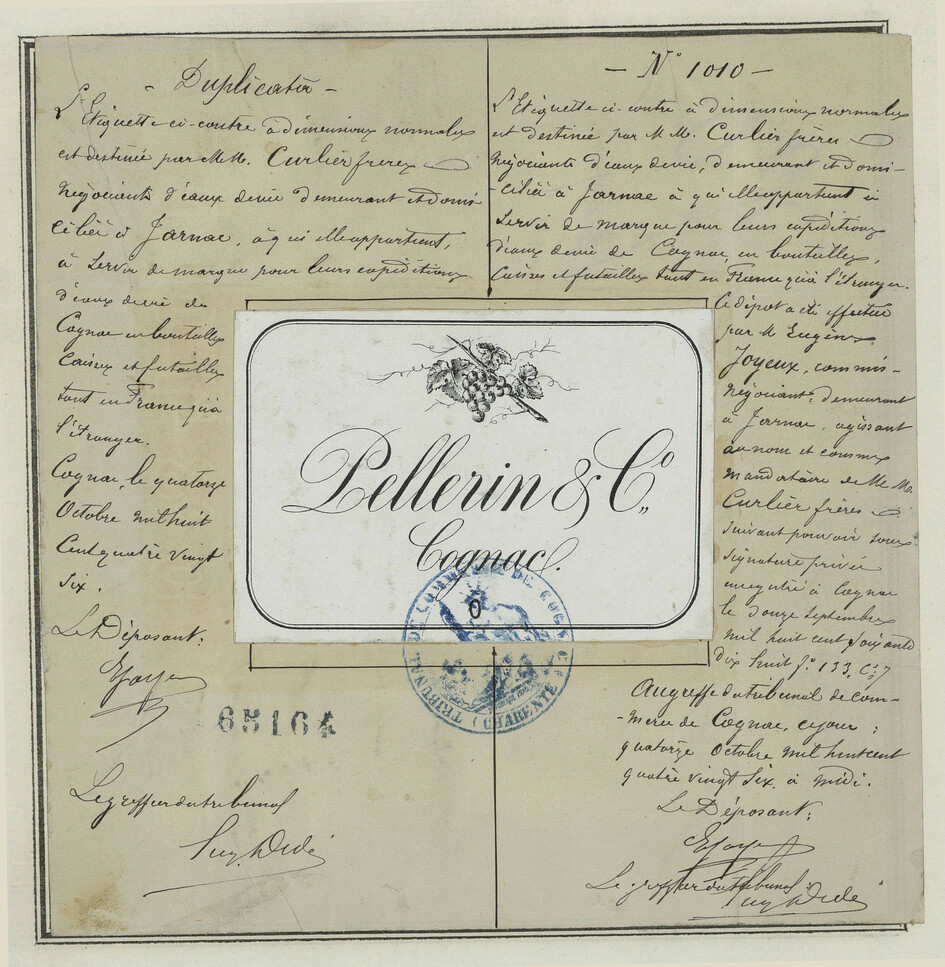 - Duplicata -
L'Etiquette ci-contre à dimensions normales
est destinée par MM. Curlier frères
Négociants d'eaux de vie demeurant et domi-
ciliés à Jarnac, à qui elle appartient,
à servir de marque pour leurs expéditions
d'eaux de vie de
Cognac en bouteilles
Caisses et futailles
tant en France qu'à
l'étranger.
Cognac, le quatorze
Octobre mil huit
Cent quatre vingt
six.
Le Déposant:
EJoyeux
65164
Le greffier du tribunal
- N° 1010 -
L'Etiquette ci-contre à dimensions normales
est destinée par MM. Curlier frères
Négociants d'eaux de vie, demeurant et domi-
-ciliés à Jarnac à qui elle appartient à
servir de marque pour leurs expéditions
d'eaux de vie de Cognac, en bouteilles,
Caisses et futailles tant en France qu'à l'étranger.
Ce dépot a été effectué
par M Eugène
Joyeux, commis-
Négociant, demeurant
à Jarnac, agissant
au nom et comme
mandataire de MM.
Curlier frères
suivant pouvoir sous
signature privée
enregistré à Cognac
le douze septembre
mil huit cent soixante
dix huit f° 133, C. 7
Au greffe du tribunal de com-
-merce de Cognac, ce jour:
quatorze Octobre mil huit cent
quatre vingt six, à midi.
Le Déposant:
EJoyeux
Le greffier du tribunal
Pellerin & C°
Cognac.
TRIBUNAL DE COMMERCE DE COGNAC
(CHARENTE)